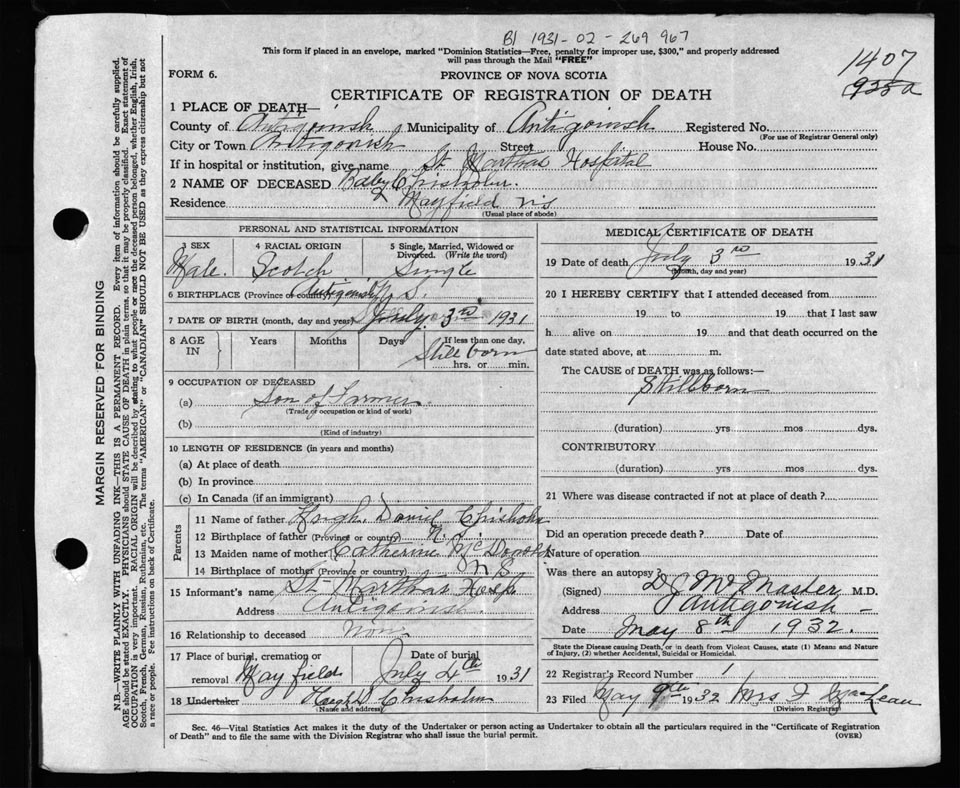 B1 1931-02-269 967
This form if placed in an envelope, marked "Dominion Statistics—Free, penalty for improper use, $300," and properly addressed
will pass through the Mail "FREE"
1407
FORM 6.
PROVINCE OF NOVA SCOTIA
CERTIFICATE OF REGISTRATION OF DEATH
1 PLACE OF DEATH—
County of Antigonish Municipality of Antigonish Registered No.
(For use of Registrar General only)
City or Town Antigonish Street House No.
If in hospital or institution, give name St. Marthas Hospital
2 NAME OF DECEASED Baby Chisholm.
Residence Mayfield
(Usual place of abode)
PERSONAL AND STATISTICAL INFORMATION
3 SEX 4 RACIAL ORIGIN 5 Single, Married, Widowed or
Divorced. (Write the word)
Male. Scotch Single
6 BIRTHPLACE (Province or country) Antigonish N.S.
7 DATE OF BIRTH (month, day and year) July 3rd 1931
8 AGE IN Years Months Days If less than one day,
Still born
hrs. or min.
9 OCCUPATION OF DECEASED
(a) Son of Farmer
(Trade or occupation or kind of work)
(b)
(Kind of industry)
10 LENGTH OF RESIDENCE (in years and months)
(a) At place of death
(b) In province
(c) In Canada (if an immigrant)
Parents
11 Name of father Hugh Daniel Chisholm
12 Birthplace of father (Province or country) N.S.
13 Maiden name of mother Catherine
14 Birthplace of mother (Province or country) N S
15 Informant's name St. Marthas Hosp.
Address Antigonish.
16 Relationship to deceased None
17 Place of burial, cremation or Date of burial
removal Mayfield July 4th 1931
18 Undertaker Hugh D Chisholm
(Name and address)
MEDICAL CERTIFICATE OF DEATH
19 Date of death July 3rd 1931
(Month, day and year)
20 I HEREBY CERTIFY that I attended deceased from
19 to 19 that I last saw
h alive on 19 and that death occurred on the
date stated above, at m.
The CAUSE of DEATH was as follows:—
Stillborn
(duration) yrs mos dys.
CONTRIBUTORY
(duration) yrs mos dys.
21 Where was disease contracted if not at place of death?
Did an operation precede death? Date of
Nature of operation
Was there an autopsy?
(Signed) D J McMaster M.D.
Address Antigonish
Date May 8th 1932.
State the Disease causing Death, or in death from Violent Causes, state (1) Means and Nature
of Injury, (2) whether Accidental, Suicidal or Homicidal.
22 Registrar's Record Number 1
23 Filed May 9th 1932 Mrs F MacLean
(Division Registrar)
Sec. 46—Vital Statistics Act makes it the duty of the Undertaker or person acting as Undertaker to obtain all the particulars required in the "Certificate of Registration
of Death" and to file the same with the Division Registrar who shall issue the burial permit.
(OVER)
MARGIN RESERVED FOR BINDING
N.B.—WRITE PLAINLY WITH UNFADING INK—THIS IS A PERMANENT RECORD. Every item of information should be carefully supplied.
AGE should be stated EXACTLY. PHYSICIANS should STATE CAUSE OF DEATH in plain terms, so that it may be properly classified. Exact statement of
OCCUPATION is very important. RACIAL ORIGIN will be described by stating to what people or race the deceased person belonged, whether English, Irish,
Scotch, French, German, Russian, Ruthenian, etc. The terms "AMERICAN" or "CANADIAN" SHOULD NOT BE USED as they express citizenship but not
a race or people. Fee instructions on back of Certificate.